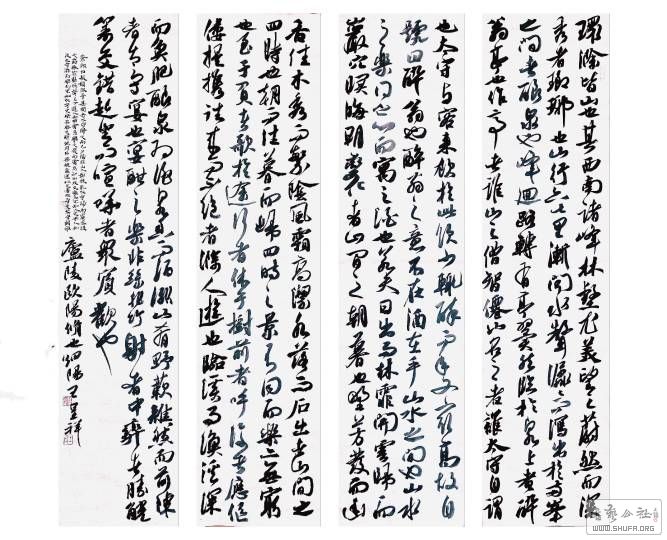 環滁皆山也其西南諸峰林壑尤美望之蔚然而深
秀者瑯琊也山行六七里漸聞水聲潺潺而瀉出於兩峰
之間者釀泉也峰迴路轉有亭翼然臨於泉上者醉
翁亭也作亭者誰山之僧智僊也名之者誰太守自謂
也太守與客來飲於此飲少輒醉而年又最高故自
號曰醉翁也醉翁之意不在酒在乎山水之間也山水
之樂得之心而寓之酒也若夫日出而林霏開雲歸而
巖穴暝晦明變化者山間之朝暮也野芳發而幽
香佳木秀而繁陰風霜高潔水落而石出者山間之
四時也朝而往暮而歸四時之景不同而樂亦無窮
也至于負者歌於途行者休于樹前者呼後者應傴
僂提攜往來而不絕者滁人遊也臨溪而漁溪深
而魚肥釀泉為酒泉香而酒洌山肴野蔌雜然而前陳
者太守宴也宴酣之樂非絲非竹射者中弈者勝觥
籌交錯起坐而喧嘩者眾賓歡也
廬陵歐陽脩也泗陽
WWW.SHUFA.ORG